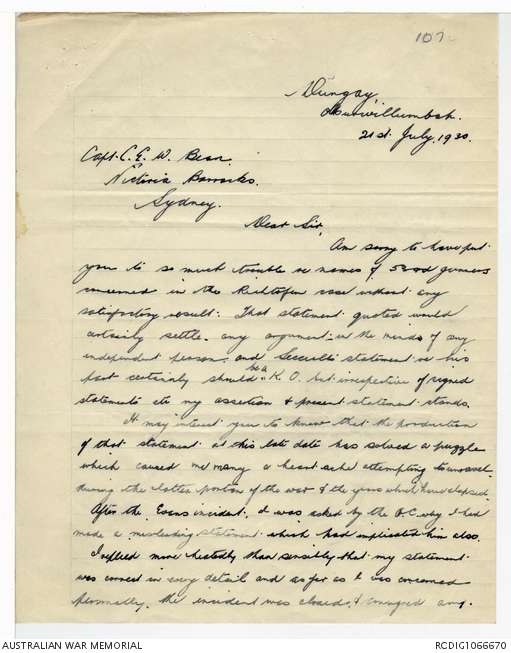 107
Dungay
Murwillumbah.
21st July, 1930.
Capt. C. E. W. Bean.
Victoria Barracks.
Sydney.
Dear Sir,
Am sorry to have put
you to so much trouble re names of 53rd gunners
concerned in the Richtofen case without any
satisfactory result. That statement quoted would
certainly settle any argument in the minds of any
independent person, and statement re his
part certainly should be a K.O. but irrespective of signed
statements etc my assertion & present statement stands.
It may interest you to know that the production
of that statement at this late date has solved a puzzle
which caused me many a heart ache attempting to unravel
during the latter portion of the war & the years which have elapsed.
After the Evans incident, I was asked by the O.C. why I had
made a misleading statement which had implicated him also.
I replied more hastedly than sensibly that my statement
was correct in every detail and as far as I was concerned
personally, the incident was closed, & any.
AUSTRALIAN WAR MEMORIAL
RCDIG1066670